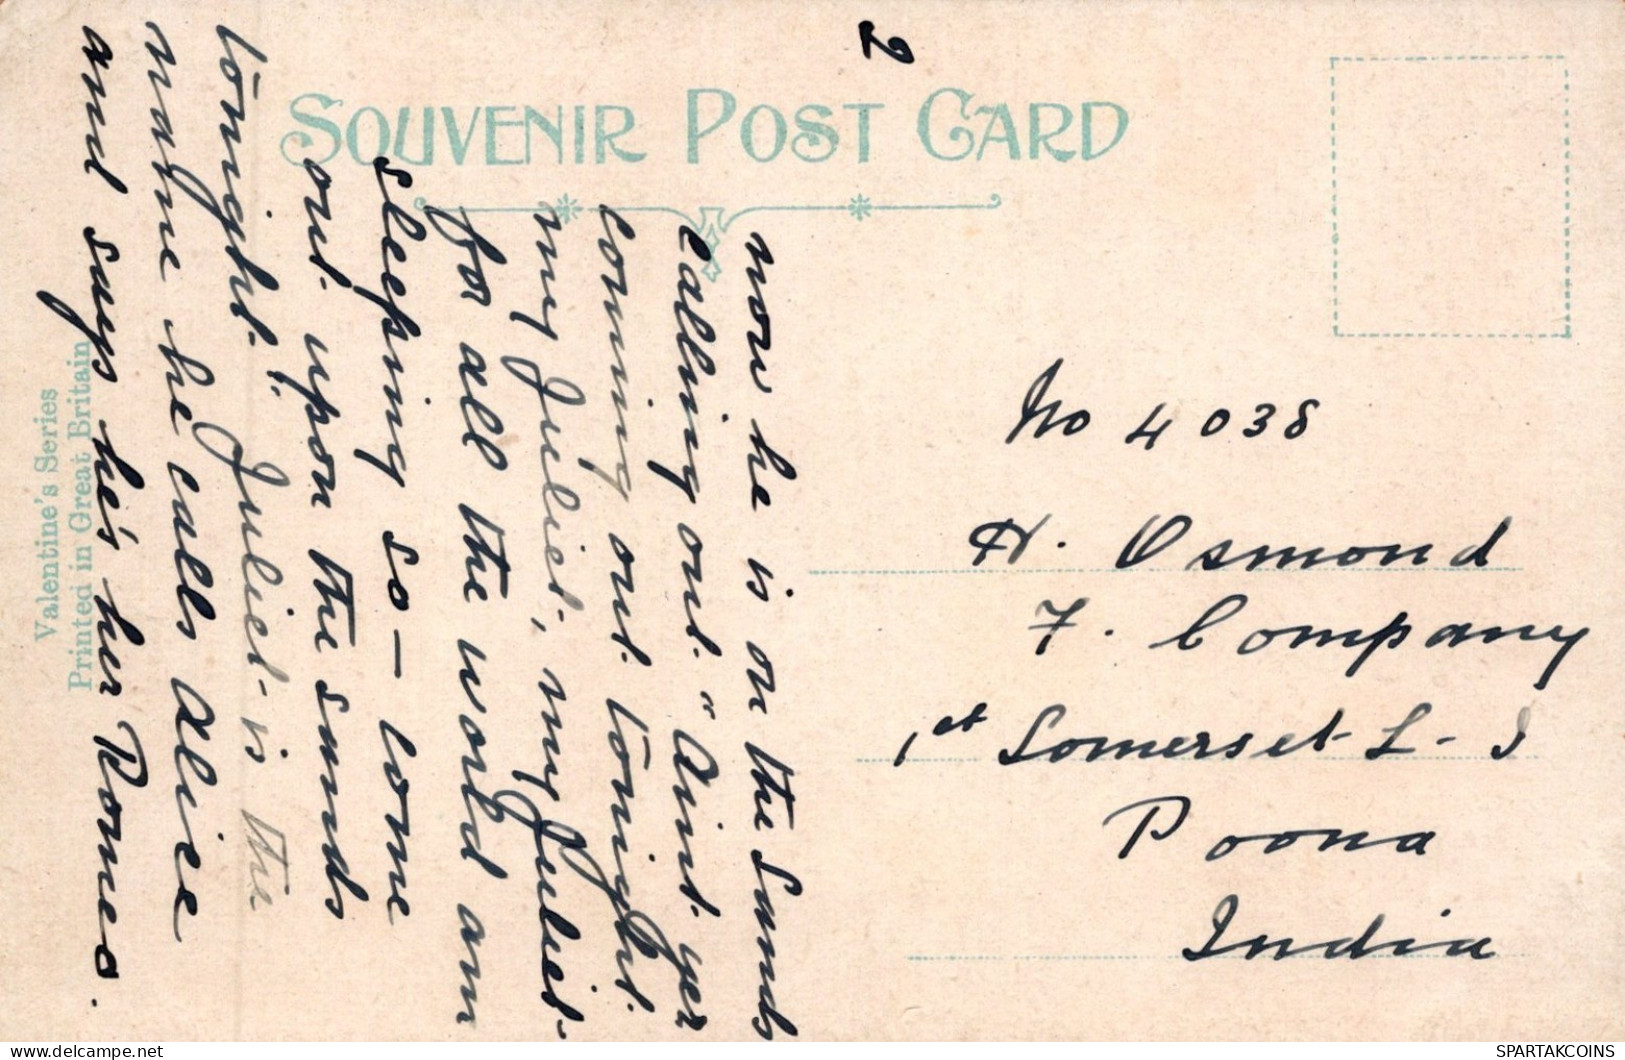 2
SOUVENIR POST CARD
now he is on the Sands
calling out "Aint yer
coming out tonight.
my Juliet, my Juliet
for all the world am
sleeping so – come
out upon the sands
tonight!" Juliet is the
name he calls Alice
and says he's her Romeo.
Valentine's Series
Printed in Great Britain
No 4038
H. Osmond
F. Company
1st Somerset L. I
Poona
India
SPARTAKCOINS
www.delcampe.net